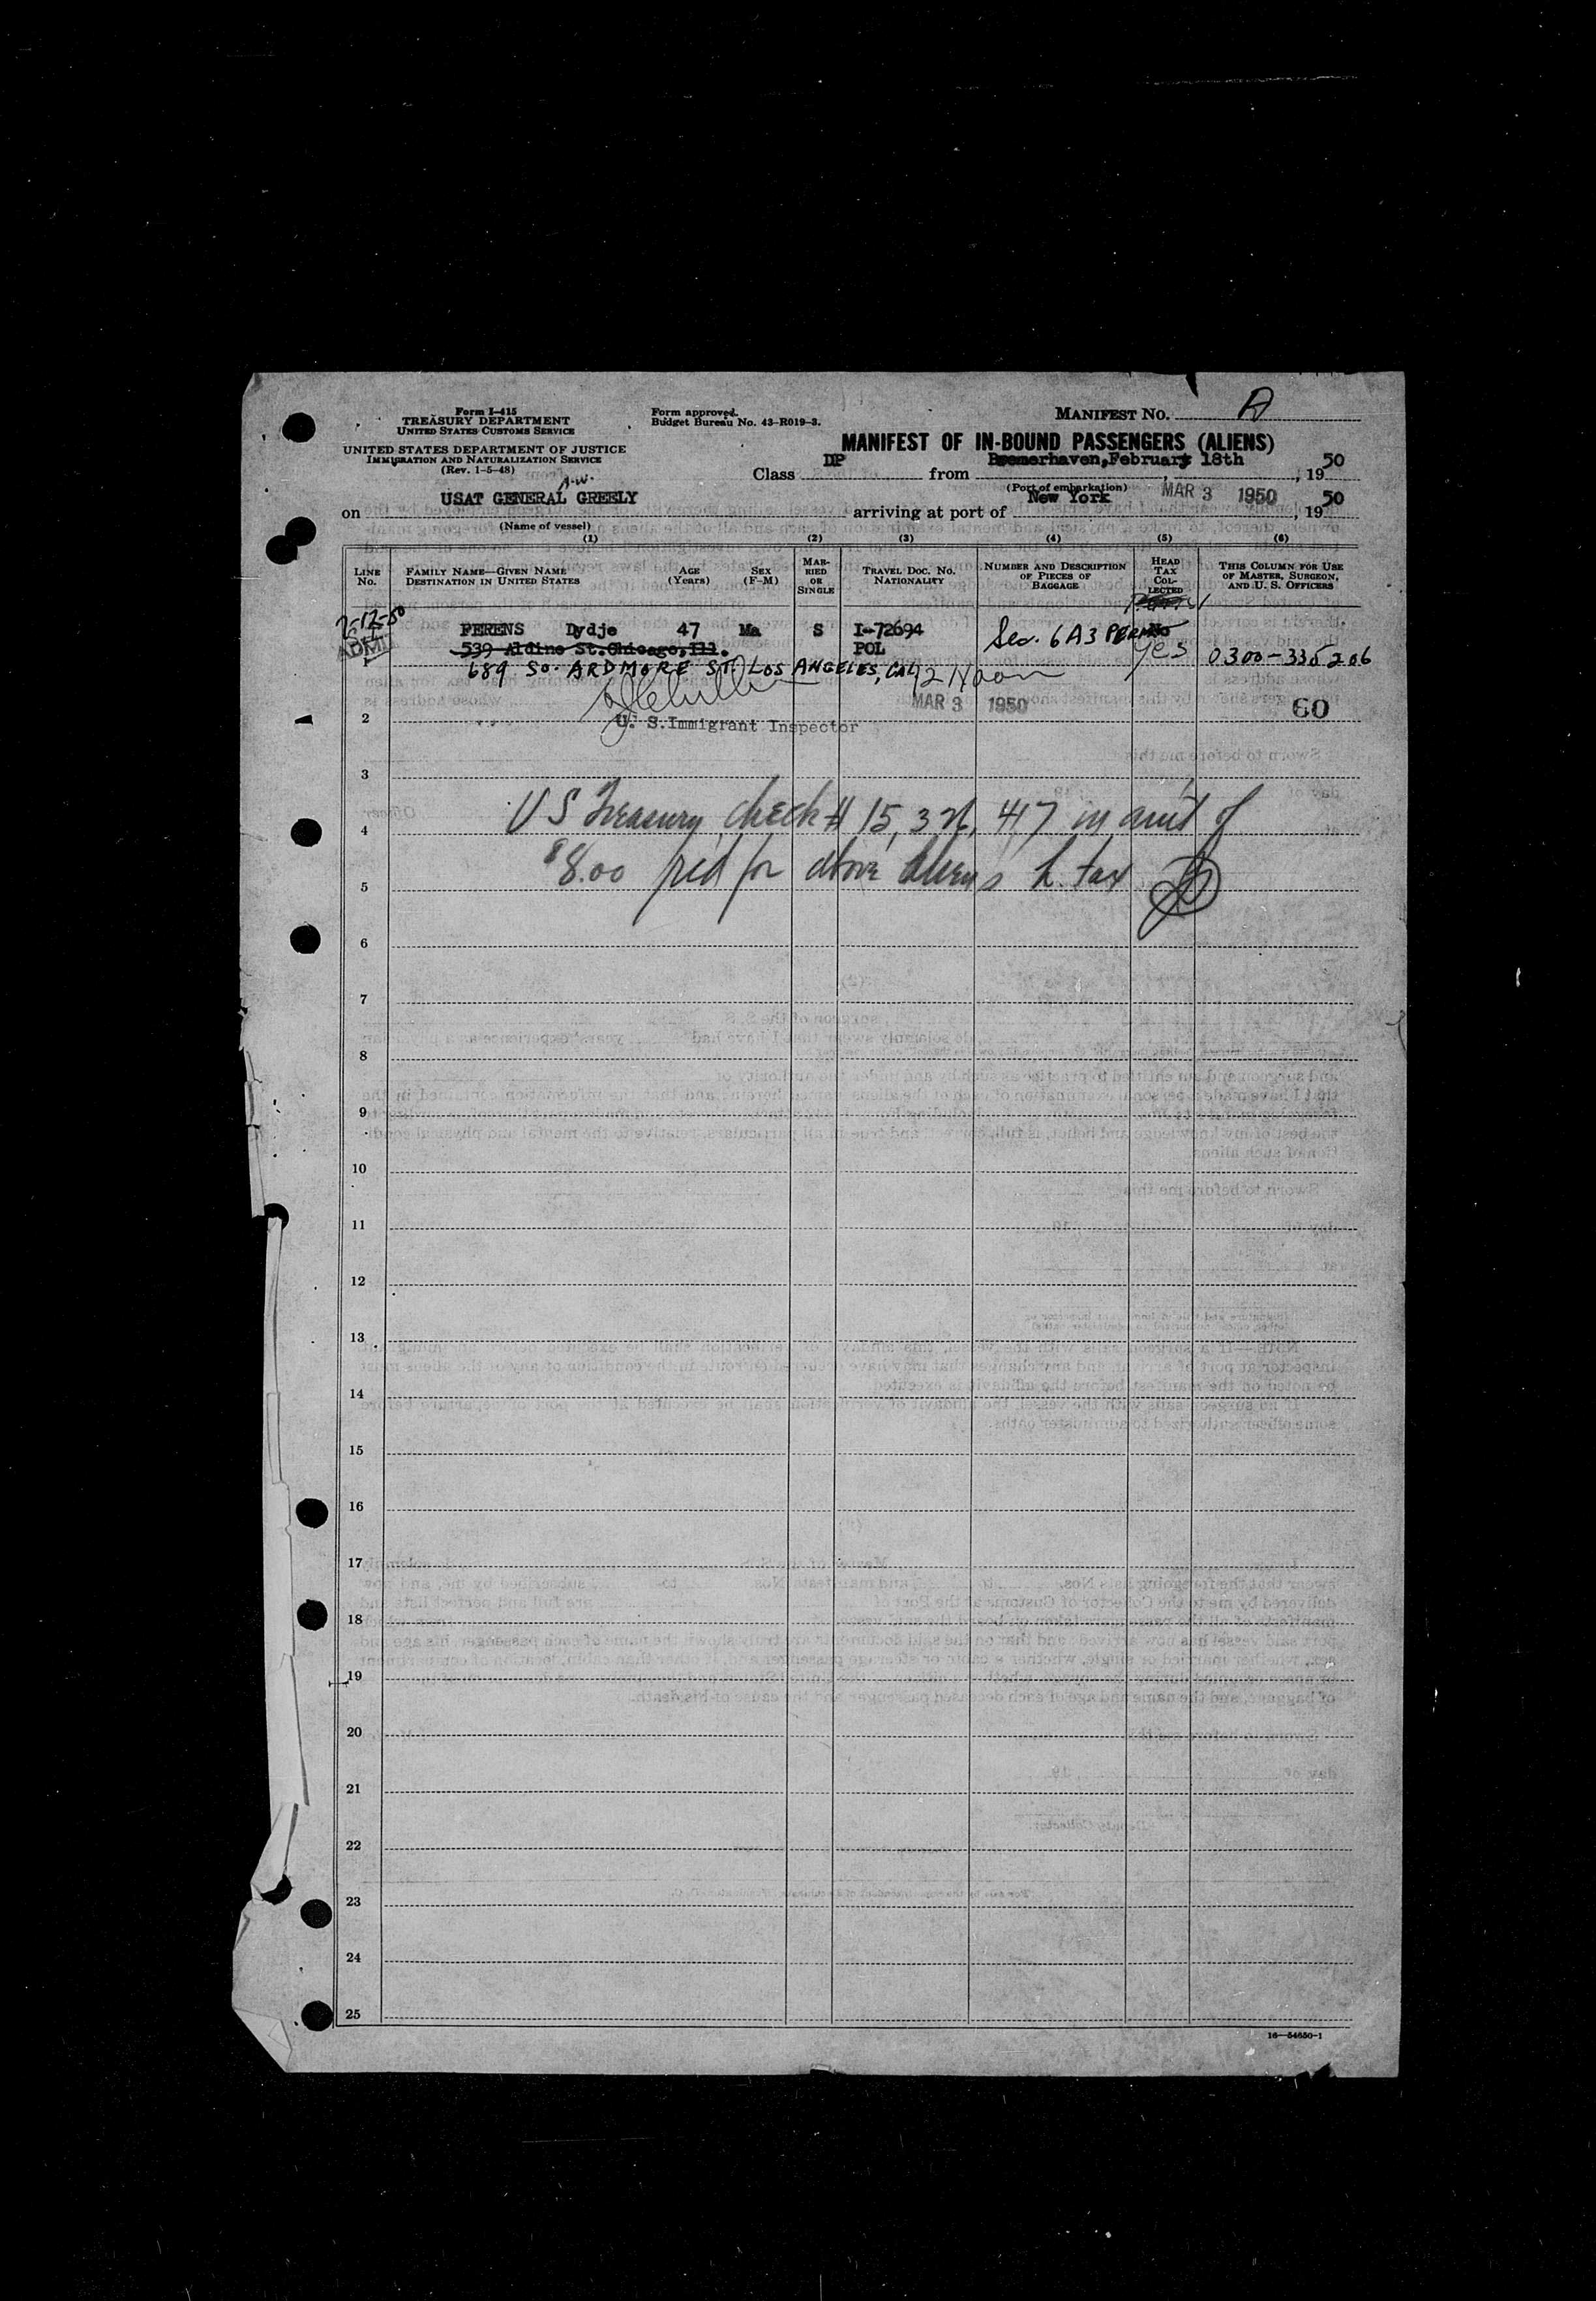 Form I-415
TREASURY DEPARTMENT
UNITED STATES CUSTOMS SERVICE
UNITED STATES DEPARTMENT OF JUSTICE
IMMIGRATION AND NATURALIZATION SERVICE
(Rev. 1-5-48)
Form approved.
Budget Bureau No. 43-R019-3.
MANIFEST NO. A
MANIFEST OF IN-BOUND PASSENGERS (ALIENS)
Class DP from Bremerhaven, February 18th, 1950
(Port of embarkation)
A.W.
on USAT GENERAL GREELY arriving at port of New York MAR 3 1950, 1950
(Name of vessel)
(1) (2) (3) (4) (5) (6)
LINE No.
FAMILY NAME—GIVEN NAME
DESTINATION IN UNITED STATES
AGE (Years)
SEX (F-M)
MARRIED OR SINGLE
TRAVEL DOC. NO.
NATIONALITY
NUMBER AND DESCRIPTION OF PIECES OF BAGGAGE
HEAD TAX COLLECTED
THIS COLUMN FOR USE OF MASTER, SURGEON, AND U. S. OFFICERS
FERENS Dydje 47 Ma S I-72694 Sec. 6A3 PERM No
539 Aldine St. Chicago, Ill. POL yes 0300-335206
689 SO. ARDMORE ST. LOS ANGELES, CAL 12 Noon
MAR 3 1950 60
2 U. S. Immigrant Inspector
3
US Treasury check # 15,326,417 in amt of
4
$8.00 for above aliens h. tax
5
6
7
8
9
10
11
12
13
14
15
16
17
18
19
20
21
22
23
24
25
16—54650-1